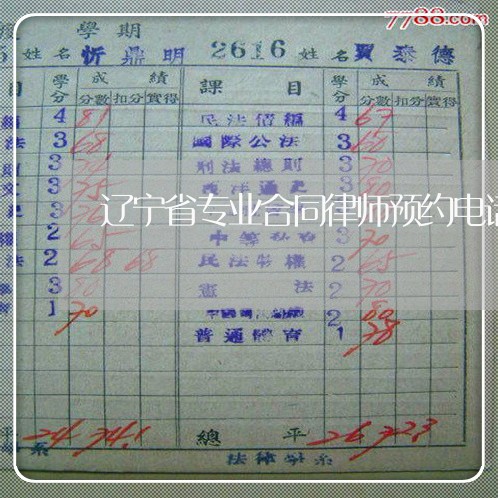 7788.com
度 學期
5 姓名 忻鼎明 2616 姓名 賈泰德
目 學分 成績 課目 學分 成績
分數 扣分 實得 分數 扣分 實得
編 4 81 民法債編 4 67
法 3 68 國際公法 3 60
則 3 刑法總則 3 70
文 3 75 西洋通史 3 80
史 3 76
2 65 3 70
法 2 68 68 民法物權 2 65
3 80 憲法 2 70
育 1 70 2 80
普通體育 1 78
平 24 74.1 總平 26 72.3
系 法律學系
辽宁省专业合同律师预约电话